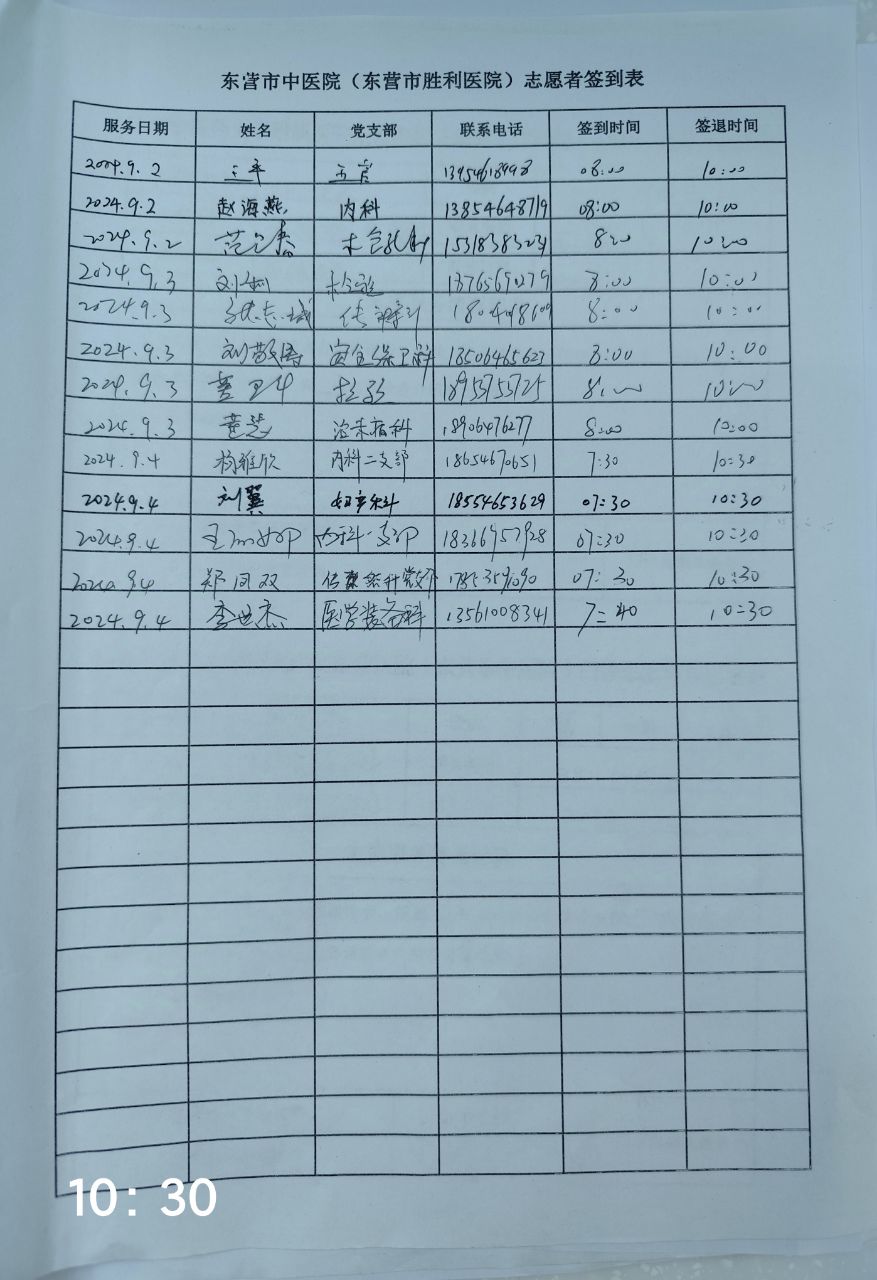 东营市中医院（东营市胜利医院）志愿者签到表
服务日期 姓名 党支部 联系电话 签到时间 签退时间
2024.9.2 王平 五官 08:00 10:00
2024.9.2 赵海燕 内科 13854648719 08:00 10:00
2024.9.2 15318383231 8:00 10:00
2024.9.3 刘 检验 18765690279 8:00 10:00
2024.9.3 8:00 10:00
2024.9.3 刘敬涛 安全保卫科 13506465623 8:00 10:00
2024.9.3 18955755725 8:00 10:00
2024.9.3 董慧 治未病科 18906476277 8:00 10:00
2024.9.4 杨雅欣 内科二支部 18654670651 7:30 10:30
2024.9.4 刘翼 妇产儿科 18554653629 07:30 10:30
2024.9.4 王 内科一支部 18366957928 07:30 10:30
郑同双 07:30 10:30
2024.9.4 李世杰 医学装备科 13561008341 7:40 10:30
10：30